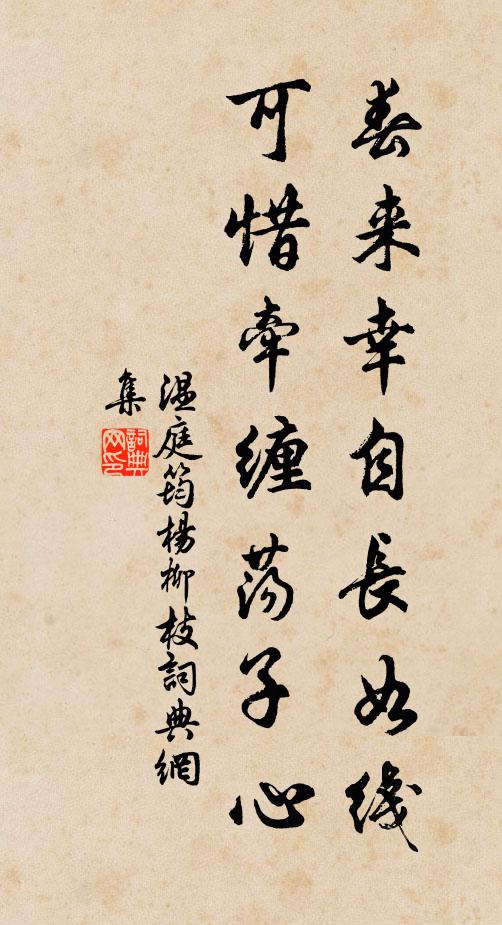 春来幸自長如线
可惜牽纏荡子心
温庭筠楊柳枝詞典網
集
詞典
网印